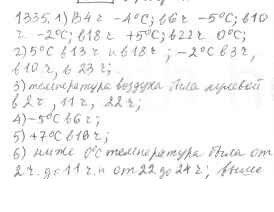 1335. 1) В 4 ч -4°С; в 6 ч -5°С; в 10
ч -2°С; в 18 ч +5°С; в 22 ч 0°С;
2) 5°С в 13 ч и в 18 ч; -2°С в 3 ч,
в 10 ч, в 23 ч;
3) температура воздуха была нулевой
в 2 ч, 11 ч, 22 ч;
4) -5°С в 6 ч;
5) +7°С в 16 ч;
6) ниже 0°С температура была от
2 ч. до 11 ч. и от 22 до 24 ч; выше